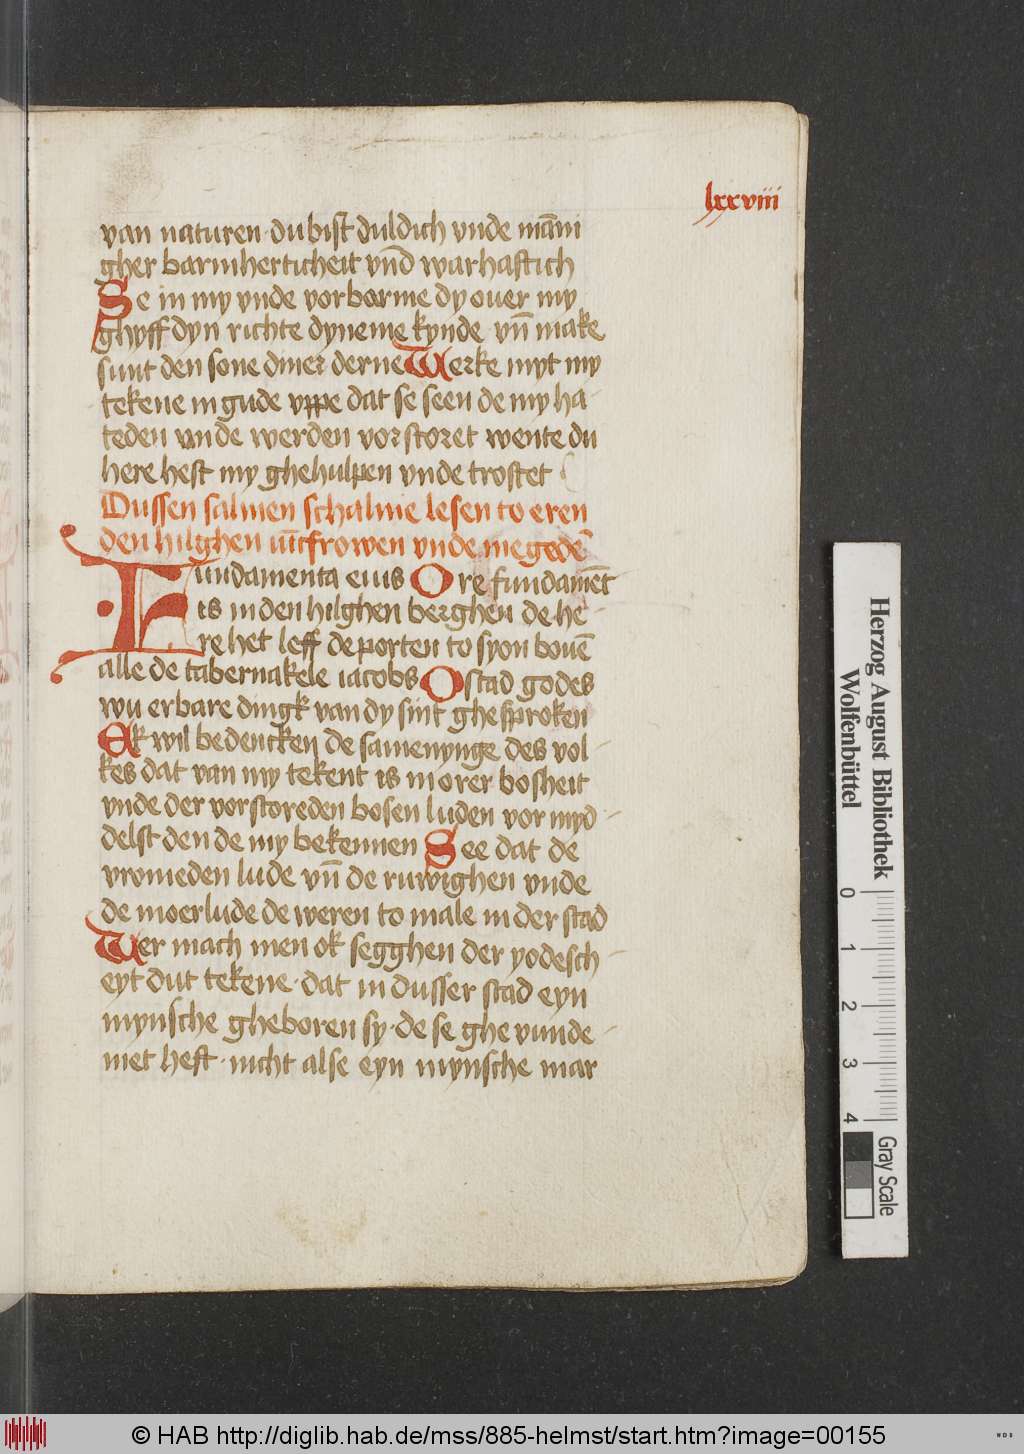 lxxviii
van naturen · du bist duldich vnde māni
gher barmherticheit vn̄d warhaftich
Se in my vnde vorbarme dy ouer my
ghyff dyn richte dyneme kynde vn̄ make
sunt den sone diner derne Werke myt my
tekene in gude vppe dat se seen de my ha-
teden vnde werden vorstoret wente du
here hest my ghehulpen vnde trostet
Dussen salmen schalme lesen to eren
den hilghen iūcfrowen vnde megedē
Fundamenta eius Ore fundamēt
is in den hilghen berghen de he-
re het leff de porten to syon bouē
alle de tabernakele iacobs O stad godes
wu erbare dingk van dy sint ghesproken
Ek wil bedencken de samenynge des vol-
kes dat van my tekent is in orer bosheit
vnde der vorstoreden bosen luden vor myd-
delst den de my bekennen See dat de
vromeden lude vn̄ de ruwighen vnde
de moerlude de weren to male in der stad
Wer mach men ok segghen der yodesch-
eyt dut tekene · dat in dusser stad eyn
mynsche gheboren sy · de se ghevunde-
met heft · nicht alse eyn mynsche mar
Herzog August Bibliothek
Wolfenbüttel
0 1 2 3 4
Gray Scale
© HAB http://diglib.hab.de/mss/885-helmst/start.htm?image=00155